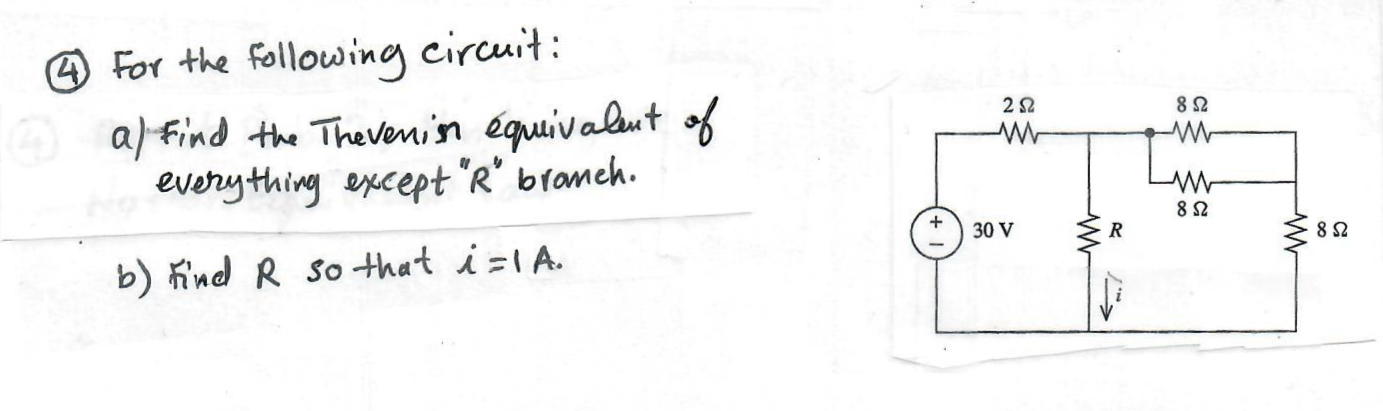 ④ For the following circuit:
a) Find the Thevenin equivalent of
everything except "R" branch.
b) Find R so that i = 1 A.
2 Ω
8 Ω
8 Ω
+
−
30 V
R
8 Ω
i